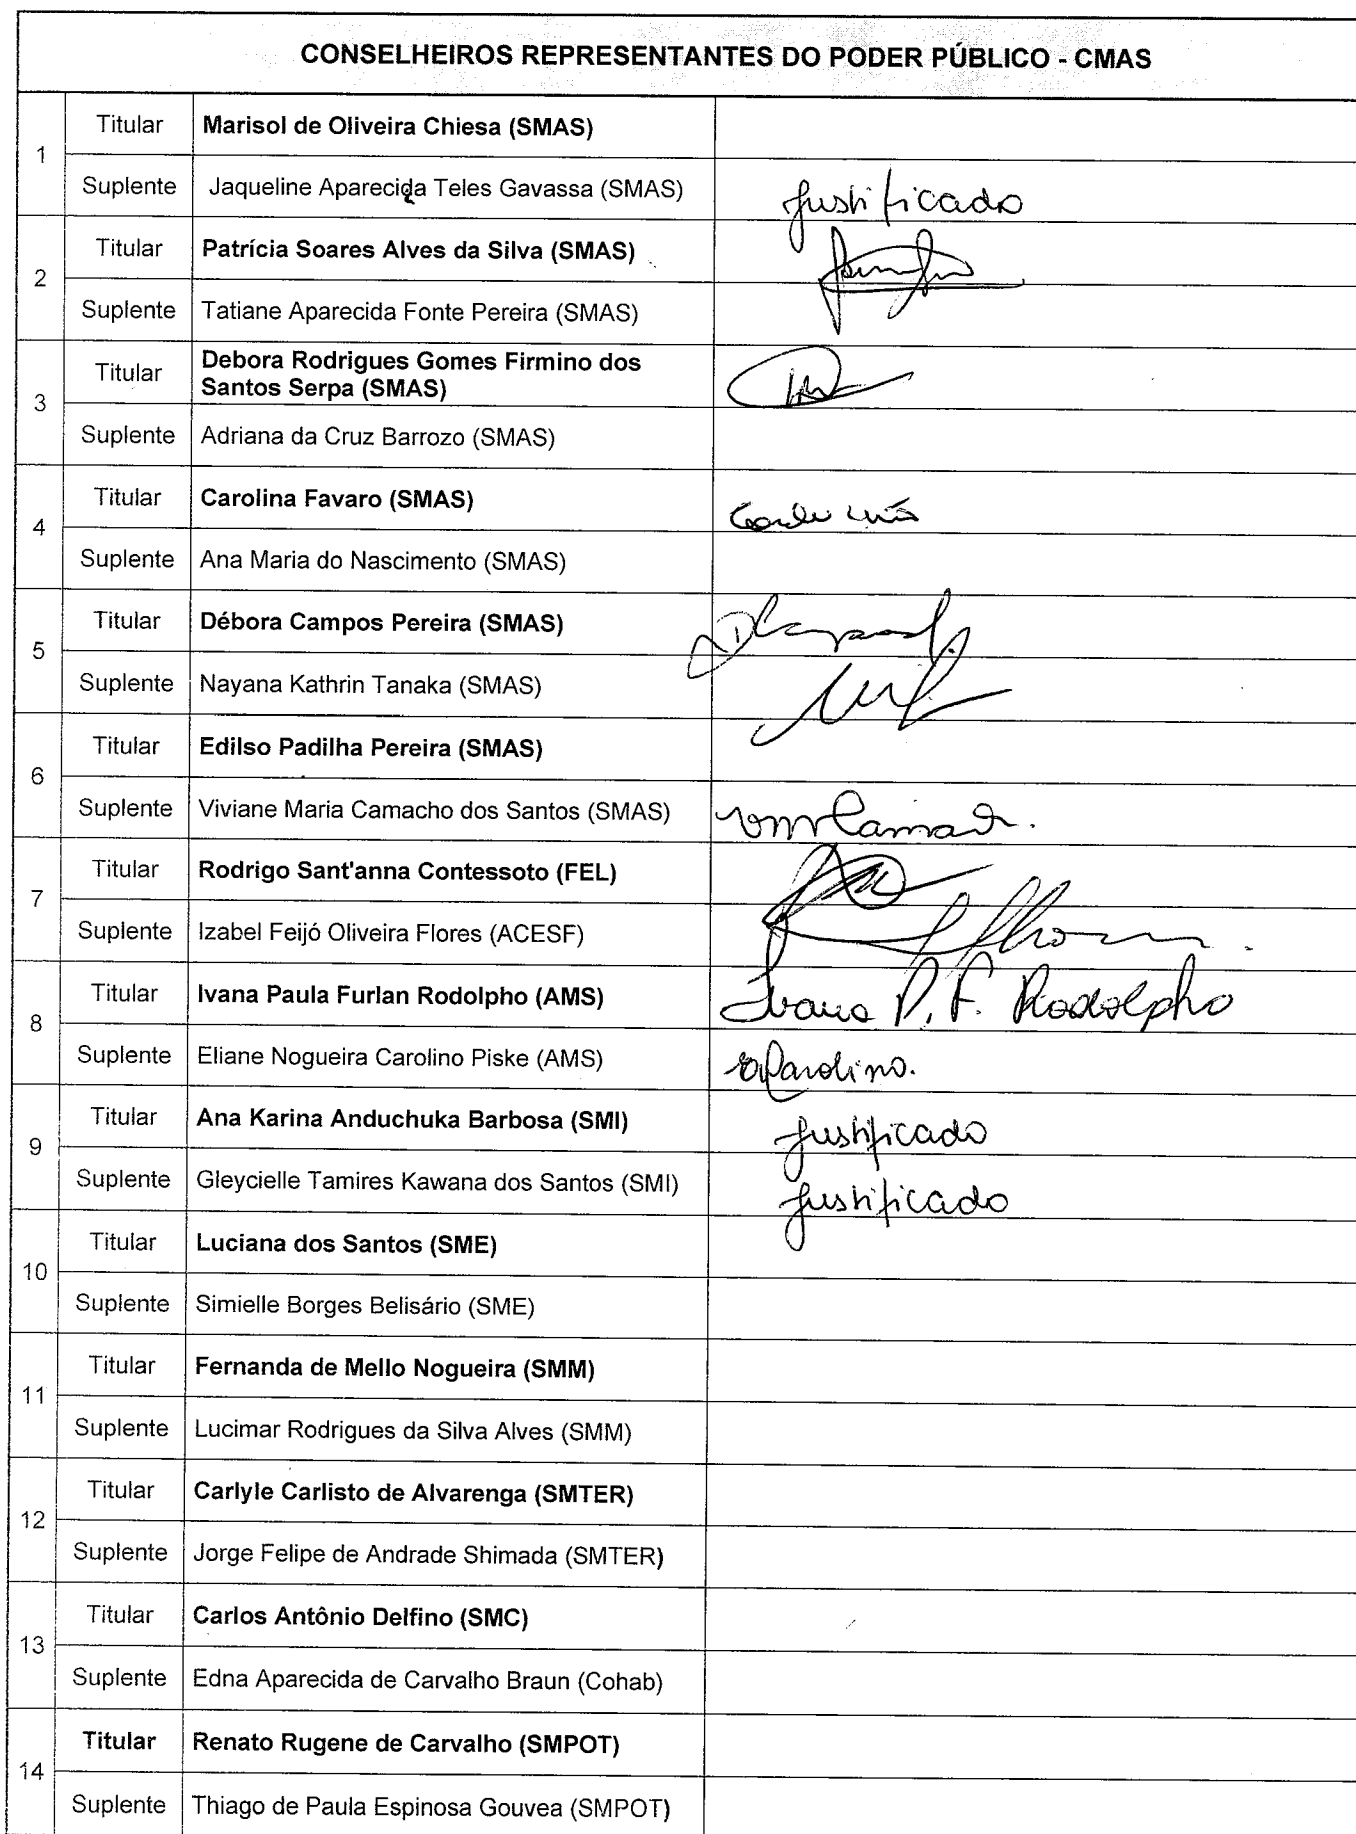 CONSELHEIROS REPRESENTANTES DO PODER PÚBLICO - CMAS
1
Titular Marisol de Oliveira Chiesa (SMAS)
Suplente Jaqueline Aparecida Teles Gavassa (SMAS) justificado
2
Titular Patrícia Soares Alves da Silva (SMAS)
Suplente Tatiane Aparecida Fonte Pereira (SMAS)
3
Titular Debora Rodrigues Gomes Firmino dos
Santos Serpa (SMAS)
Suplente Adriana da Cruz Barrozo (SMAS)
4
Titular Carolina Favaro (SMAS)
Suplente Ana Maria do Nascimento (SMAS)
5
Titular Débora Campos Pereira (SMAS)
Suplente Nayana Kathrin Tanaka (SMAS)
6
Titular Edilso Padilha Pereira (SMAS)
Suplente Viviane Maria Camacho dos Santos (SMAS)
7
Titular Rodrigo Sant'anna Contessoto (FEL)
Suplente Izabel Feijó Oliveira Flores (ACESF)
8
Titular Ivana Paula Furlan Rodolpho (AMS) Ivana P. F. Rodolpho
Suplente Eliane Nogueira Carolino Piske (AMS)
9
Titular Ana Karina Anduchuka Barbosa (SMI) justificado
Suplente Gleycielle Tamires Kawana dos Santos (SMI) justificado
10
Titular Luciana dos Santos (SME)
Suplente Simielle Borges Belisário (SME)
11
Titular Fernanda de Mello Nogueira (SMM)
Suplente Lucimar Rodrigues da Silva Alves (SMM)
12
Titular Carlyle Carlisto de Alvarenga (SMTER)
Suplente Jorge Felipe de Andrade Shimada (SMTER)
13
Titular Carlos Antônio Delfino (SMC)
Suplente Edna Aparecida de Carvalho Braun (Cohab)
14
Titular Renato Rugene de Carvalho (SMPOT)
Suplente Thiago de Paula Espinosa Gouvea (SMPOT)